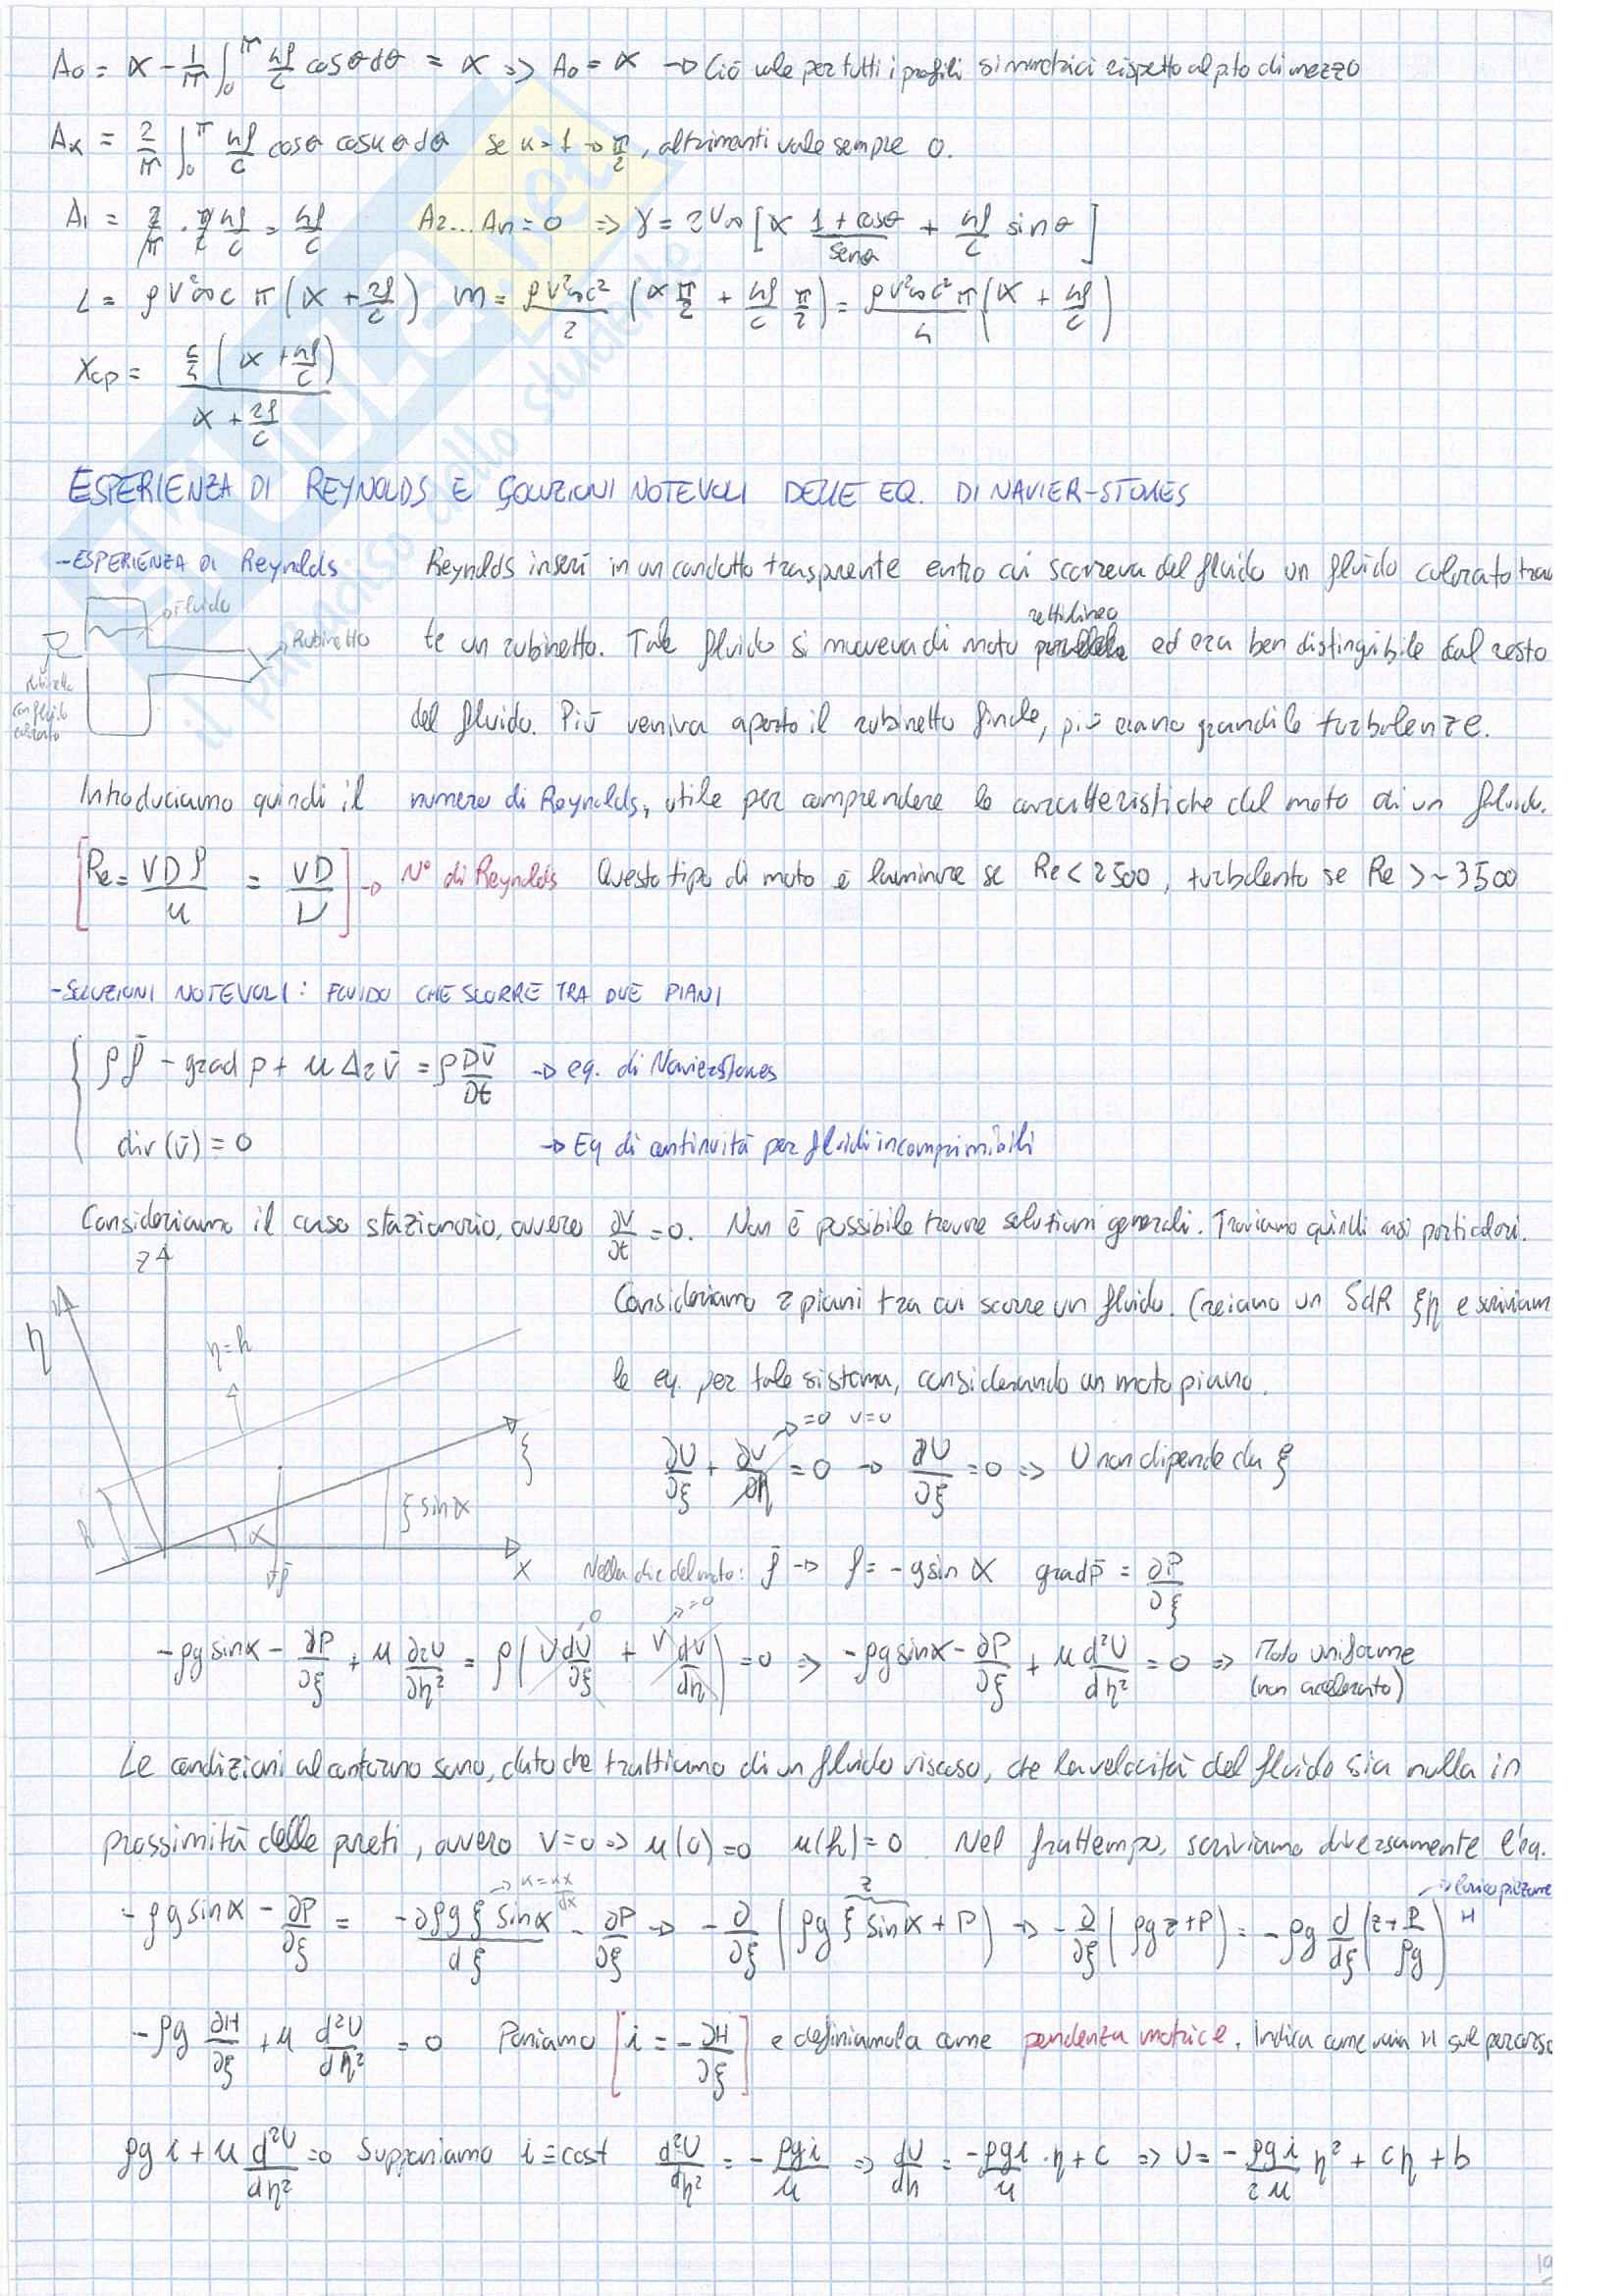 A₀ = α - 1/π ∫₀^π 4f/c cosθ dθ = α => A₀ = α → Ciò vale per tutti i profili simmetrici rispetto al p.to di mezzo
Aₙ = 2/π ∫₀^π 4f/c cosθ cosnθ dθ se n=1 → π/2, altrimenti vale sempre 0.
A₁ = 2/π · π/2 4f/c = 4f/c A₂...Aₙ = 0 => γ = 2V∞ [α (1+cosθ)/senθ + 4f/c sinθ]
L = ρV²∞c π(α + 2f/c) m = ρV²∞c²/2 (α π/2 + 4f/c π/2) = ρV²∞c²π/4 (α + 4f/c)
Xcp = c/4 (α + 4f/c) / (α + 2f/c)
ESPERIENZA DI REYNOLDS E SOLUZIONI NOTEVOLI DELLE EQ. DI NAVIER-STOKES
-ESPERIENZA DI Reynolds Reynolds inserì in un condotto trasparente entro cui scorreva del fluido un fluido colorato tram
Fluido
Rubinetto
Rubinetto con fluido colorato
te un rubinetto. Tale fluido si muoveva di moto rettilineo ed era ben distinguibile dal resto
del fluido. Più veniva aperto il rubinetto finale, più erano grandi le turbolenze.
Introduciamo quindi il numero di Reynolds, utile per comprendere le caratteristiche del moto di un fluido.
[Re = VDρ/μ = VD/ν] → N° di Reynolds Questo tipo di moto è laminare se Re < 2500, turbolento se Re > ~3500
-SOLUZIONI NOTEVOLI: FLUIDO CHE SCORRE TRA DUE PIANI
{ ρf̄ - grad p + μ Δ₂ v̄ = ρ Dv̄/Dt → eq. di Navier Stokes
div(v̄) = 0 → Eq di continuità per fluidi incomprimibili
Consideriamo il caso stazionario, ovvero ∂V/∂t = 0. Non è possibile trovare soluzioni generali. Troviamo quindi casi particolari.
z
η
η=h
ξ
ξ sinα
h
α
f̄
x
Consideriamo 2 piani tra cui scorre un fluido. Creiamo un SdR ξη e scriviam
le eq. per tale sistema, considerando un moto piano.
∂U/∂ξ + ∂V/∂η = 0 → ∂U/∂ξ = 0 => U non dipende da ξ
→ =0 v=0
Nella dir. del moto: f̄ → f = -g sinα grad p̄ = ∂P/∂ξ
-ρg sinα - ∂P/∂ξ + μ ∂²U/∂η² = ρ(U dU/∂ξ + V dV/dη) = 0 => -ρg sinα - ∂P/∂ξ + μ d²U/dη² = 0 => Moto uniforme
0 → =0
(non accelerato)
Le condizioni al contorno sono, dato che trattiamo di un fluido viscoso, che la velocità del fluido sia nulla in
prossimità delle pareti, ovvero v=0 => u(0)=0 u(h)=0. Nel frattempo, scriviamo diversamente l'eq.
-ρg sinα - ∂P/∂ξ = -∂ρg ξ sinα/dξ - ∂P/∂ξ → -∂/∂ξ (ρg ξ sinα + P) → -∂/∂ξ (ρgz + P) = -ρg d/dξ (z + P/ρg)
z
H
-ρg ∂H/∂ξ + μ d²U/dη² = 0 Poniamo [i = -∂H/∂ξ] e definiamola come pendenza motrice. Indica come varia H sul percorso
ρg i + μ d²U/dη² = 0 Supponiamo i = cost d²U/dη² = -ρgi/μ => dU/dη = -ρgi/μ · η + c => U = -ρgi/2μ η² + cη + b
il paradiso dello studente